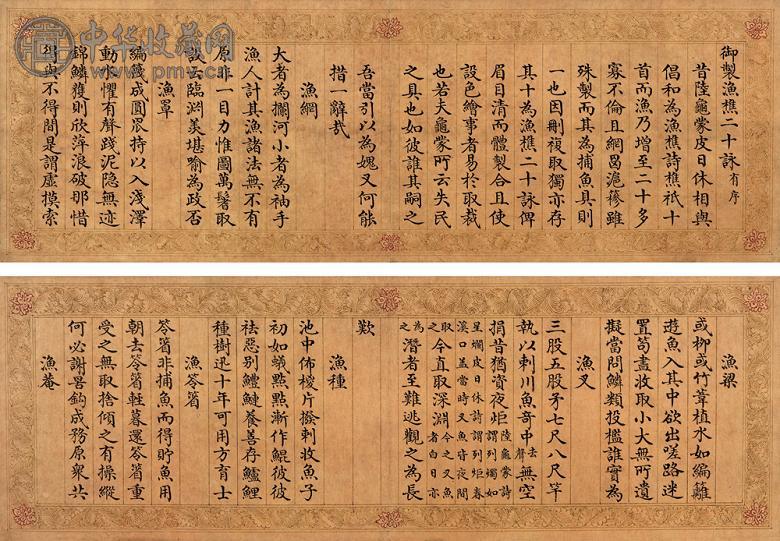 御製漁樵二十詠 有序
昔陸龜蒙皮日休相與
倡和為漁樵詩樵祇十
首而漁乃增至二十多
寡不倫且網罟滬雖
殊製而其為捕魚具則
一也因刪複取獨亦存
其十為漁樵二十詠俾
眉目清而體製合且使
設色繪事者易於取裁
也若夫龜蒙所云失民
之具也如彼誰其嗣之
吾當引以為媿又何能
措一辭哉
漁網
大者為攔河小者為袖手
漁人計其漁諸法無不有
原非一目力惟圖萬鬐取
云臨淵羨堪喻為政否
漁罩
編篾成圓眾持以入淺澤
動水懼有聲踐泥隱無迹
錦鱗獲則欣萍浪破那惜
得與不得間是謂虛摸索
中华收藏网
www.pmcn.net
漁梁
或柳或竹葦植水如編籬
遊魚入其中欲出嗟路迷
置笱盡收取小大無所遺
擬當問鱗類投檻誰實為
漁叉
三股五股矛七尺八尺竿
執以刺川魚奇中去聲無空
捐昔猶資夜炬陸龜蒙詩謂列燭如
星爛皮日休詩謂列炬春溪口蓋當時叉魚皆夜間
取今直取深淵今之叉魚者白日亦
為之潛者至難逃觀之為長
歎
漁種
池中佈椶片撥剌收魚子
初如蟻點點漸作鯤彼彼
袪惡别鱧鰱養善存鱸鯉
種樹迅十年可用方育士
漁笭箵
笭箵非捕魚而得貯魚用
朝去笭箵輕暮還笭箵重
受之無取捨傾之有操縱
何必謝罟鈎成務原衆共
漁菴